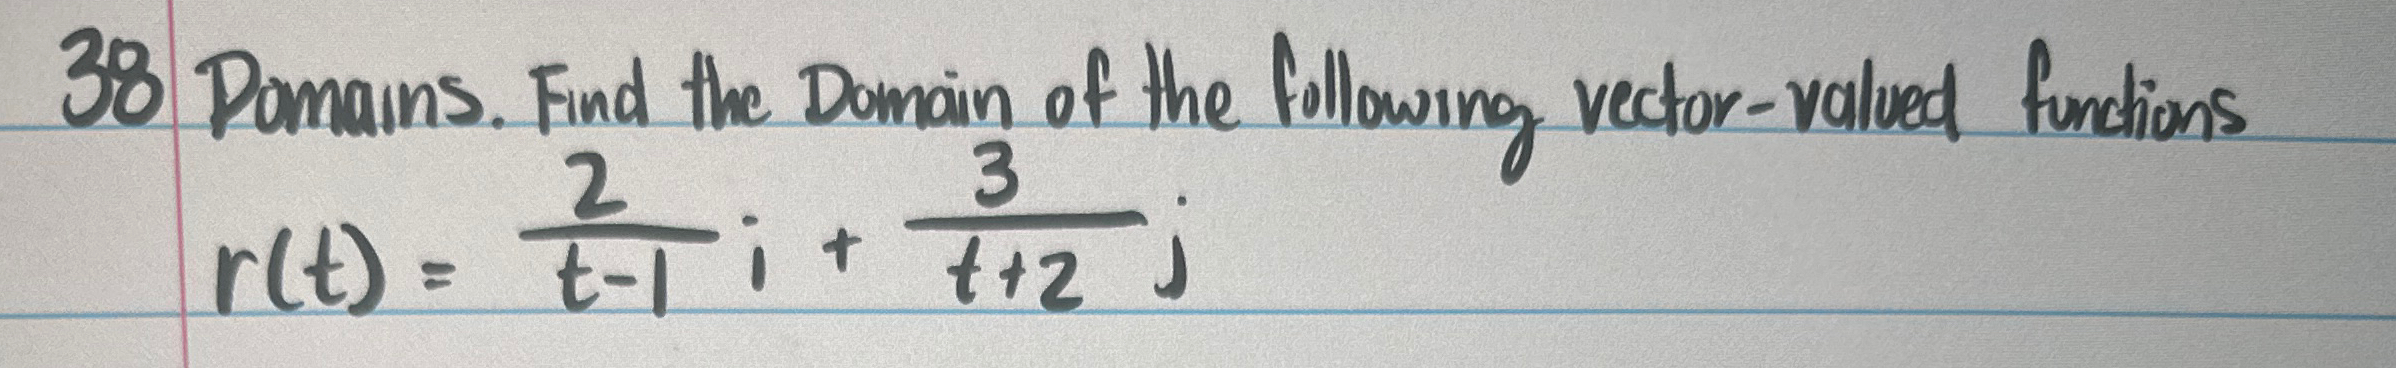 38 Domains. Find the Domain of the following vector-valued functions
r(t) = 2/(t-1) i + 3/(t+2) j